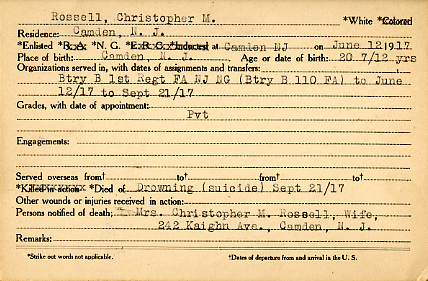 Rossell, Christopher M. *White *Colored
Residence: Camden, N. J.
*Enlisted *R.A. *N. G. *E.R.C. *Inducted at Camden NJ on June 12 1917
Place of birth: Camden, N. J. Age or date of birth: 20 7/12 yrs
Organizations served in, with dates of assignments and transfers:
Btry B 1st Regt FA NJ NG (Btry B 110 FA) to June
12/17 to Sept 21/17
Grades, with date of appointment:
Pvt
Engagements:
Served overseas from† to† from† to†
*Killed in action *Died of Drowning (suicide) Sept 21/17
Other wounds or injuries received in action:
Persons notified of death: Mrs. Christopher M. Rossell, Wife,
242 Kaighn Ave., Camden, N. J.
Remarks:
*Strike out words not applicable. †Dates of departure from and arrival in the U. S.